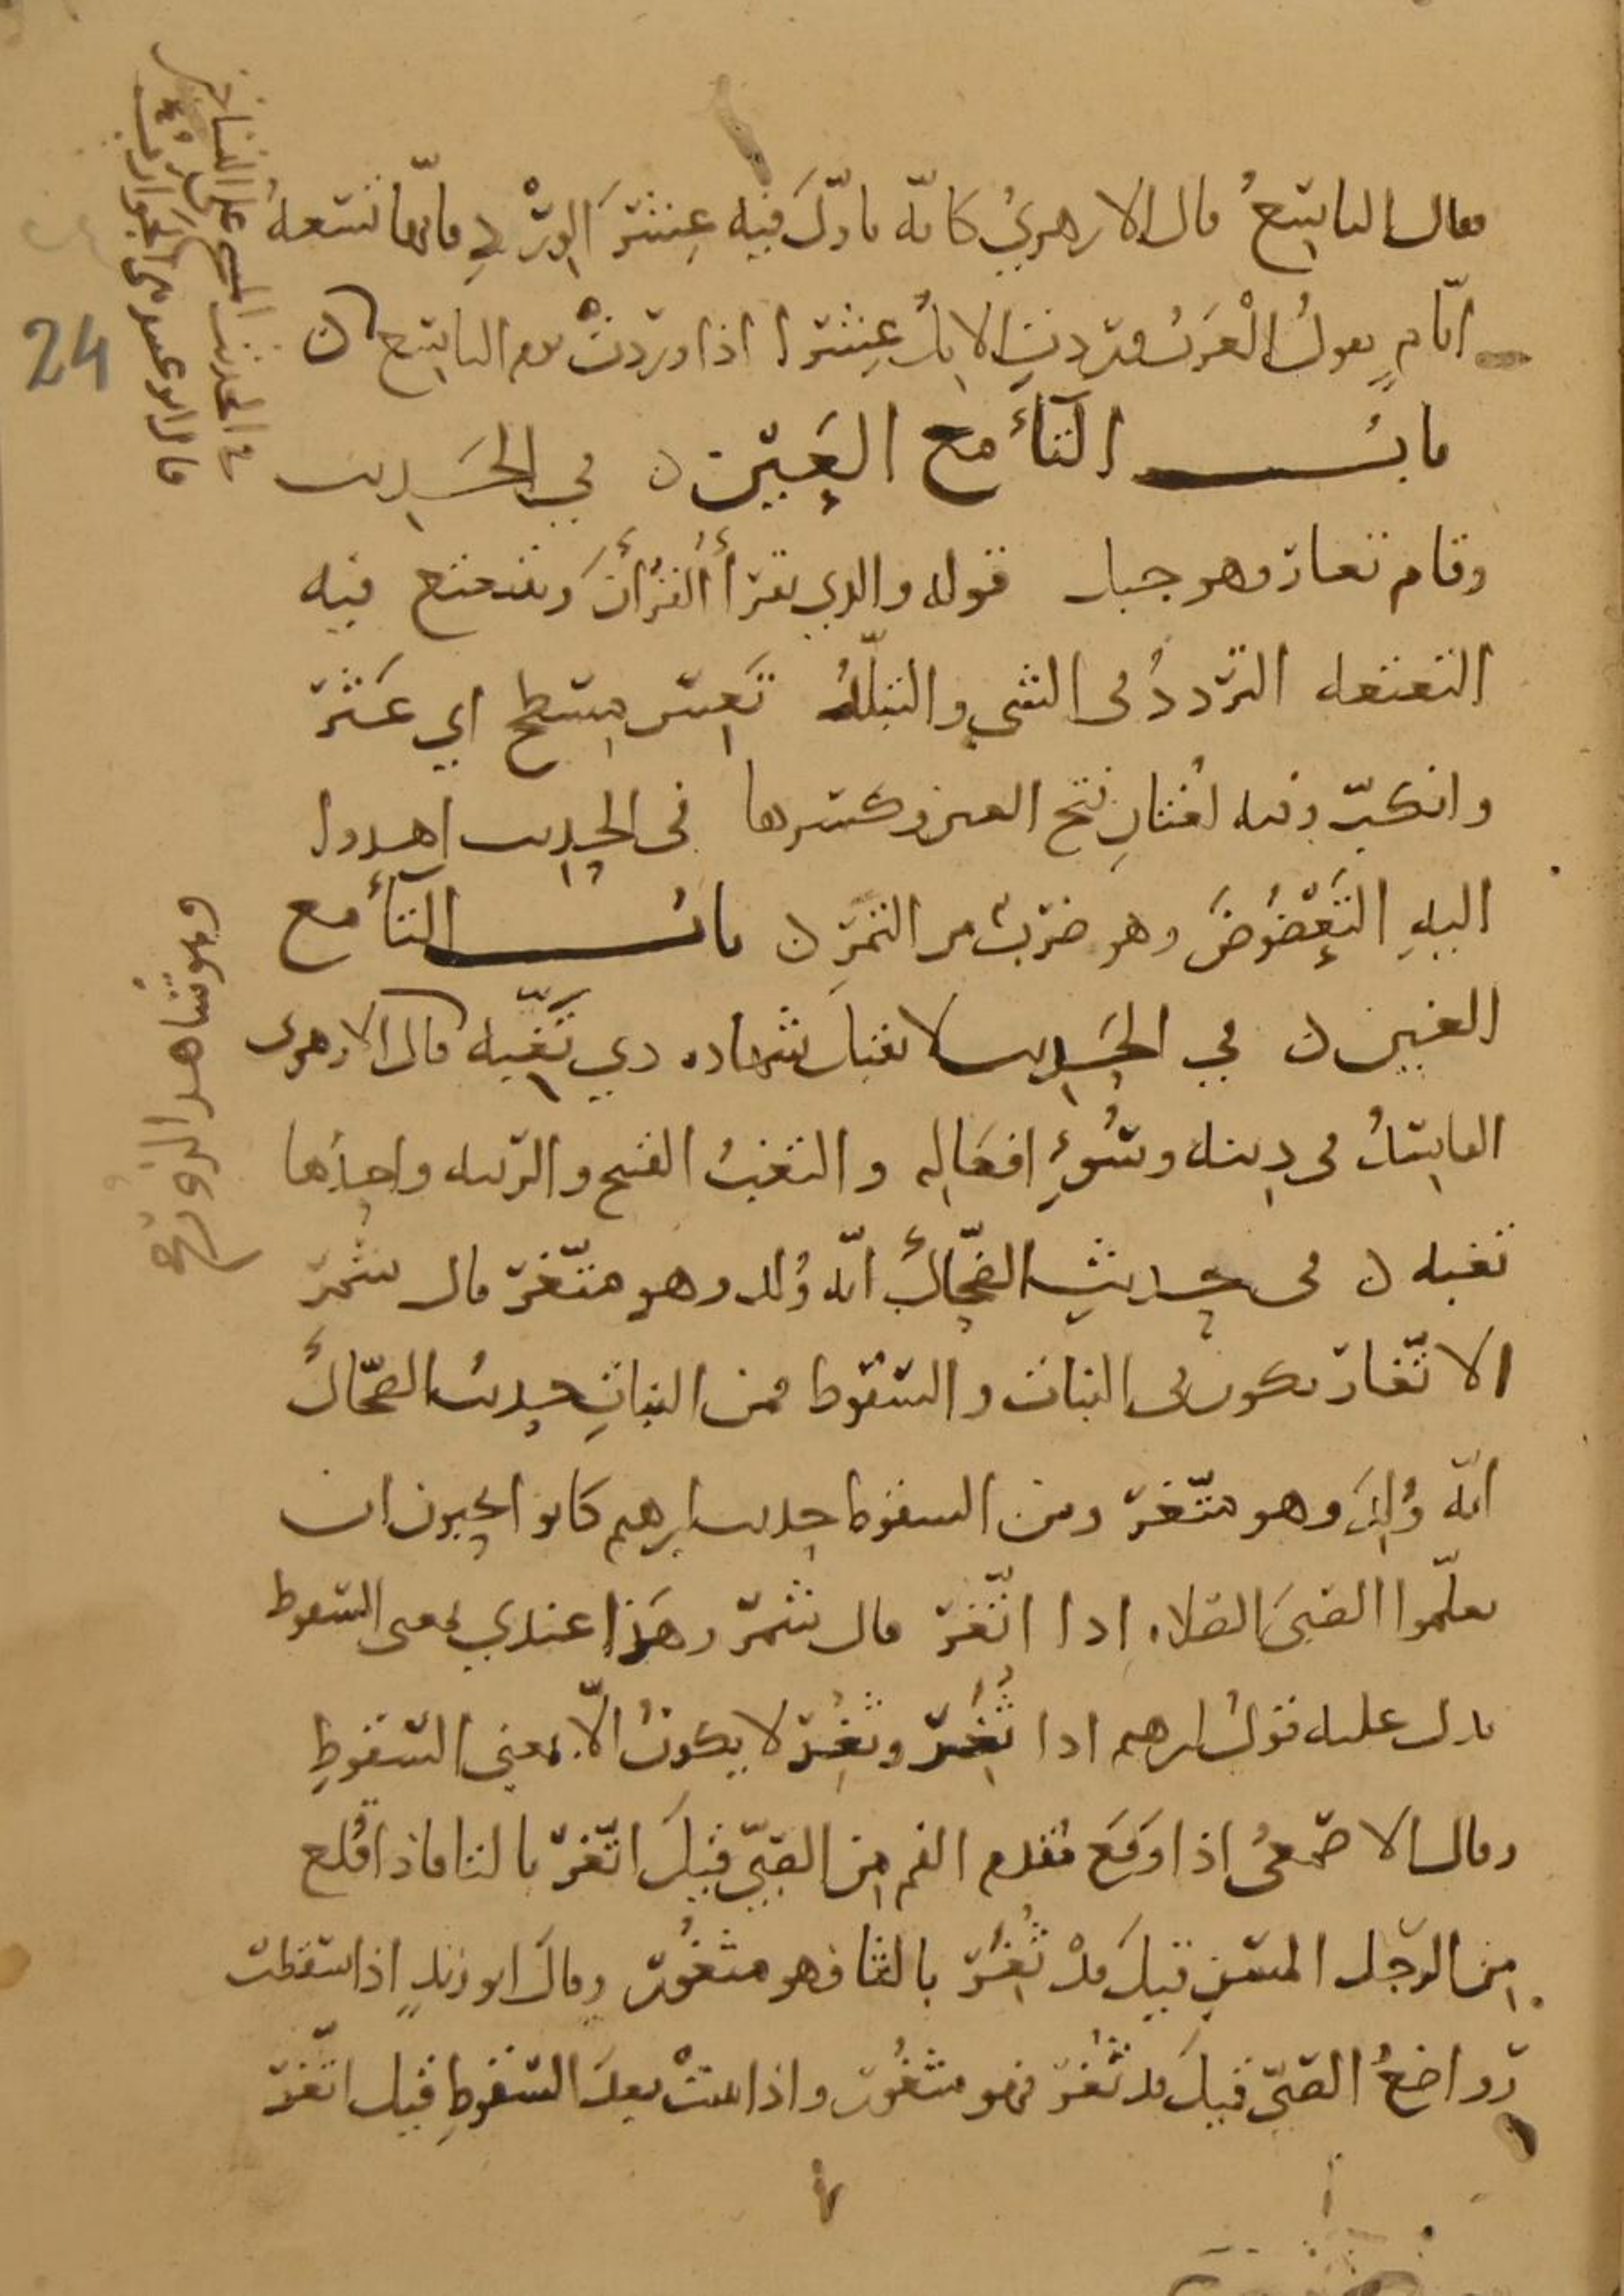 فقال التاسع قال الازهريُّ كانّه تأوّلَ فيه عِشْرَ الوِرْدِ فانّها تسعهُ
ايّامٍ يقولُ الْعَرَبُ وردتِ الابلُ عِشْرًا اذا وردتْ يوم التاسع ن
بابُ التاء مع العَيْن ن في الحَديث
وقام تعار وهو جبل قوله والذي يقرأُ القُرْآنَ ويتتعتع فيه
التعتعه التردّدُ فى الشي والتبلّدُ تَعِسَ مِسْطح اي عَثَرَ
وانكبّ وفيه لغتانِ فتح العين وكسرها فى الحديث اهدوا
اليهِ التَّعْضُوضَ وهو ضَرْبٌ من التَّمْرِ ن بابُ التاء مع
الغين ن في الحَديث لا تقبل شهاده ذي تَغِبَّه قال الازهرى
الفاسدُ فى دينه وسُوءِ افعَالِه والتغبُ القبح والرّيبه واحدها
تغبه ن فى حديثِ الضحّاكِ انّه وُلد وهو متّغر قال شمر
الاتّغار يكون فى النبات والسّقوط فمن النباتِ حديثُ الضحّاك
انّه وُلِدَ وهو متّغر ومن السقوط حديث ابرهيم كانوا يحبون ان
يعلّموا الصبىَ الصلاه اذا اتّغر قال شمر وهَذا عندي بمعنى السّقوط
يدل عليه قول ابرهيم اذا ثُغِر وثُغِر لا يكونُ الّا بمعنى السّقوطِ
وقال الاصمعىُّ اذا وَقَعَ مُقدم الفم من الصبىّ قيلَ اتّغر بالتا فاذا قُلع
من الرّجل المسن قيلَ قدْ ثُغِر بالثا فهو مثغُور وقالَ ابو زيدٍ اذا سقطت
رَواضعُ الصبىّ قيلَ قد ثُغر فهو مثغُور واذا نبتتْ بعدَ السّقوطِ قيل اتّغر
24
وهو شاهد الزور